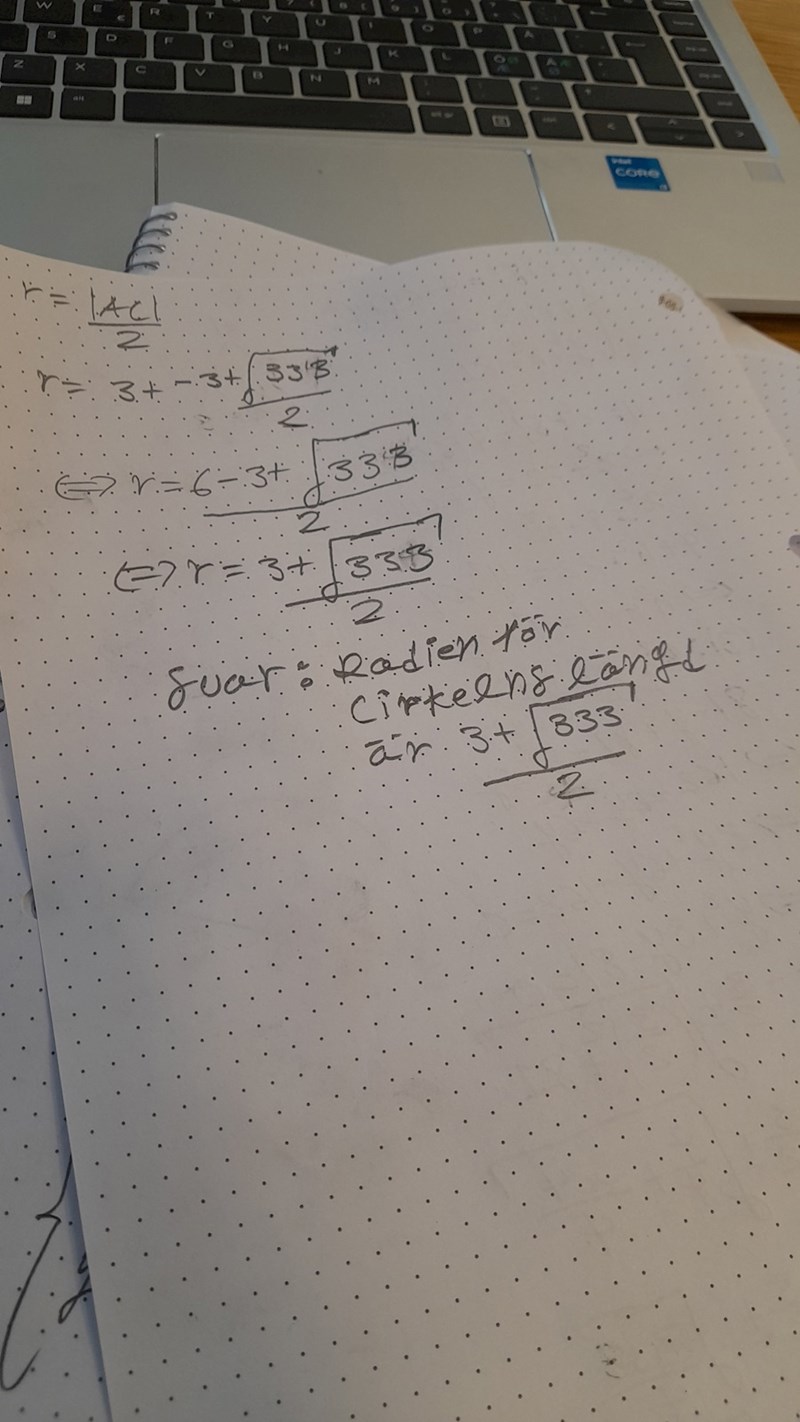 W E R T Y U I O P Å
S D F G H J K L Ö Ä
Z X C V B N M
intel
CORE
r = |AC|/2
r = 3 + -3+√333/2
⇔ r = 6-3+√333/2
⇔ r = 3+√333/2
Svar: Radien för
cirkelns längd
är 3+√333/2
y